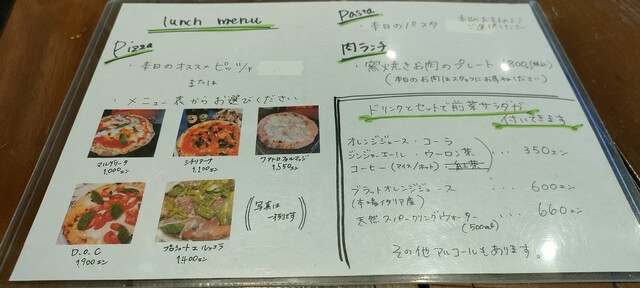 lunch menu
Pizza
・本日のオススメ ピッツァ
または
・メニュー表からお選びください
マルゲリータ
1,000エン
シチリアーナ
1,100エン
クワトロフォルマッジ
1,550エン
D.O.C
1,900エン
プロシュート エ ルッコラ
1,400エン
(写真は一例です)
Pasta
・本日のパスタ
肉ランチ
・窯焼きお肉のプレート 1,800(税込)
(本日のお肉はスタッフにお尋ねください)
ドリンクとセットで前菜サラダが
付いてきます
オレンジジュース・コーラ
ジンジャーエール・ウーロン茶 ・・・ 350エン
コーヒー(アイス/ホット)・紅茶
ブラッドオレンジジュース ・・・ 600エン
(本場イタリア産)
天然スパークリングウォーター ・・・ 660エン
(500ml)
その他アルコールもあります。